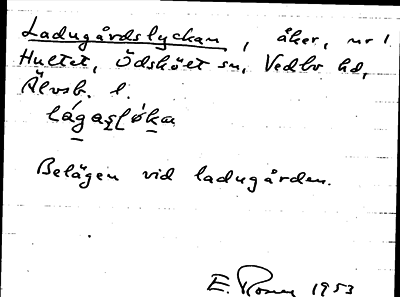 Ladugårdslyckan, åker, nr 1
Hultet, Ödskölt sn, Vedbo hd,
Älvsb. l.
lágasl̥óka
Belägen vid ladugården.
E. Rosen 1953